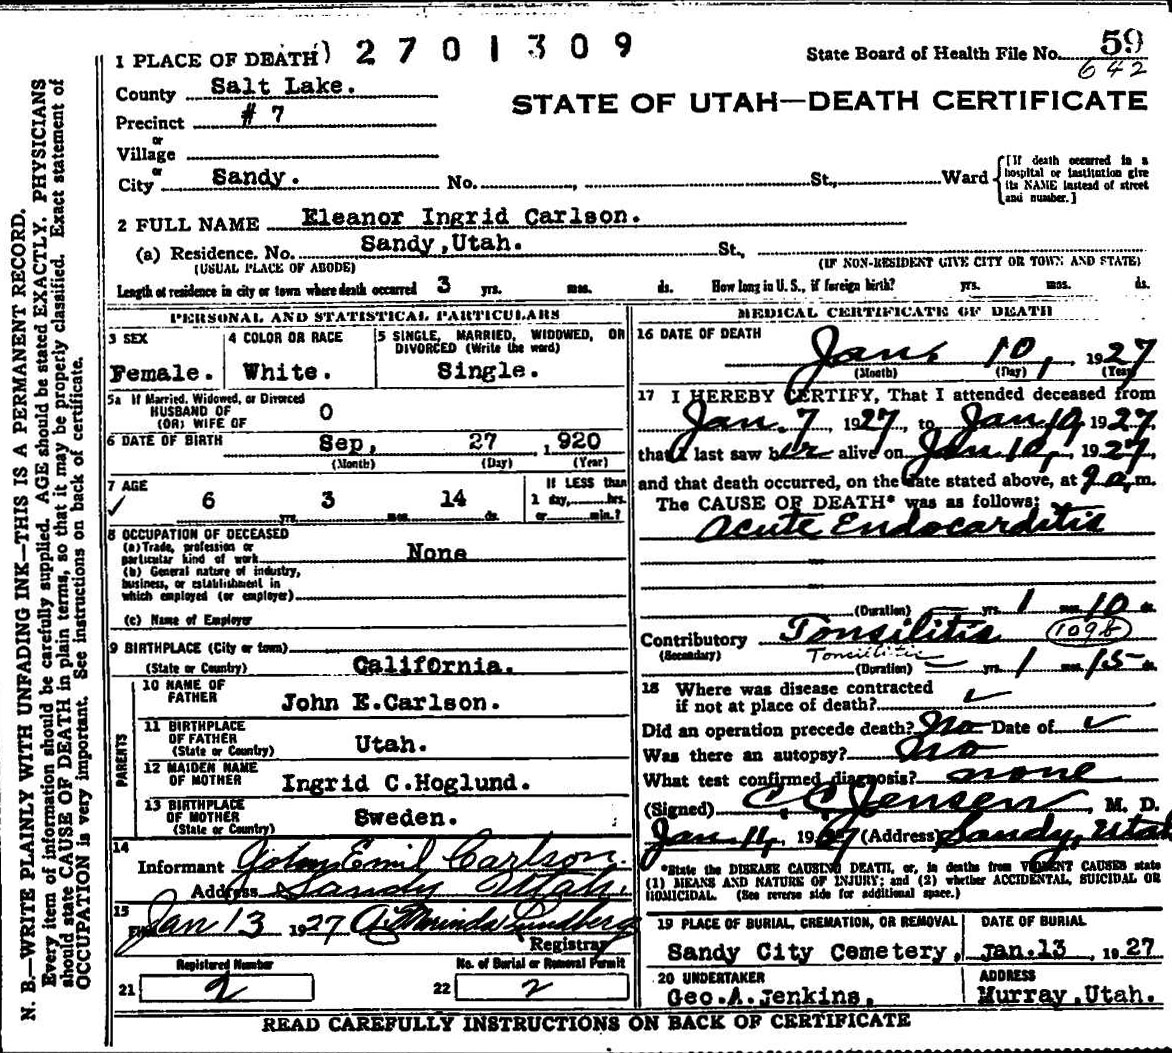 1 PLACE OF DEATH) 2 7 0 1 3 0 9
State Board of Health File No. 59
642
County Salt Lake.
STATE OF UTAH—DEATH CERTIFICATE
Precinct # 7
or
Village
or
City Sandy. No. , St., Ward
[If death occurred in a hospital or institution give its NAME instead of street and number.]
2 FULL NAME Eleanor Ingrid Carlson.
(a) Residence. No. Sandy,Utah. St.,
(USUAL PLACE OF ABODE) (IF NON-RESIDENT GIVE CITY OR TOWN AND STATE)
Length of residence in city or town where death occurred 3 yrs. mos. ds. How long in U. S., if foreign birth? yrs. mos. ds.
PERSONAL AND STATISTICAL PARTICULARS
3 SEX
Female.
4 COLOR OR RACE
White.
5 SINGLE, MARRIED, WIDOWED, OR
DIVORCED (Write the word)
Single.
5a If Married, Widowed, or Divorced
HUSBAND OF
(OR) WIFE OF
O
6 DATE OF BIRTH Sep, 27 , 1920
(Month) (Day) (Year)
7 AGE
✓ 6 yrs. 3 mos. 14 ds.
If LESS than
1 day,......hrs.
or......min.?
8 OCCUPATION OF DECEASED
(a) Trade, profession or
particular kind of work None
(b) General nature of industry,
business, or establishment in
which employed (or employer)
(c) Name of Employer
9 BIRTHPLACE (City or town)
(State or Country) California.
PARENTS
10 NAME OF
FATHER John E.Carlson.
11 BIRTHPLACE
OF FATHER
(State or Country) Utah.
12 MAIDEN NAME
OF MOTHER Ingrid C.Hoglund.
13 BIRTHPLACE
OF MOTHER
(State or Country) Sweden.
14
Informant John Emil Carlson.
Address Sandy Utah.
15
Filed Jan 13 1927 A. Marinda Lundberg
Registrar
Registered Number
21 2
No. of Burial or Removal Permit
22 2
MEDICAL CERTIFICATE OF DEATH
16 DATE OF DEATH
Jan. 10, 1927
(Month) (Day) (Year)
17 I HEREBY CERTIFY, That I attended deceased from
Jan. 7, 1927, to Jan 10 1927,
that I last saw her alive on Jan 10, 1927,
and that death occurred, on the date stated above, at 9 a.m.
The CAUSE OF DEATH* was as follows:
Acute Endocarditis
(Duration) — yrs. 1 mos. 10 ds.
Contributory Tonsilitis 109b
(Secondary) Tonsilitis
(Duration) — yrs. 1 mos. 15 ds.
18 Where was disease contracted
if not at place of death? ✓
Did an operation precede death? No Date of ✓
Was there an autopsy? No
What test confirmed diagnosis? none
(Signed) C C Jensen, M. D.
Jan 14, 1927 (Address) Sandy, Utah
*State the DISEASE CAUSING DEATH, or, in deaths from VIOLENT CAUSES state
(1) MEANS AND NATURE OF INJURY; and (2) whether ACCIDENTAL, SUICIDAL OR
HOMICIDAL. (See reverse side for additional space.)
19 PLACE OF BURIAL, CREMATION, OR REMOVAL
Sandy City Cemetery,
DATE OF BURIAL
Jan.13 , 1927
20 UNDERTAKER
Geo.A.Jenkins.
ADDRESS
Murray,Utah.
READ CAREFULLY INSTRUCTIONS ON BACK OF CERTIFICATE
N. B.—WRITE PLAINLY WITH UNFADING INK—THIS IS A PERMANENT RECORD.
Every item of information should be carefully supplied. AGE should be stated EXACTLY. PHYSICIANS
should state CAUSE OF DEATH in plain terms, so that it may be properly classified. Exact statement of
OCCUPATION is very important. See instructions on back of certificate.